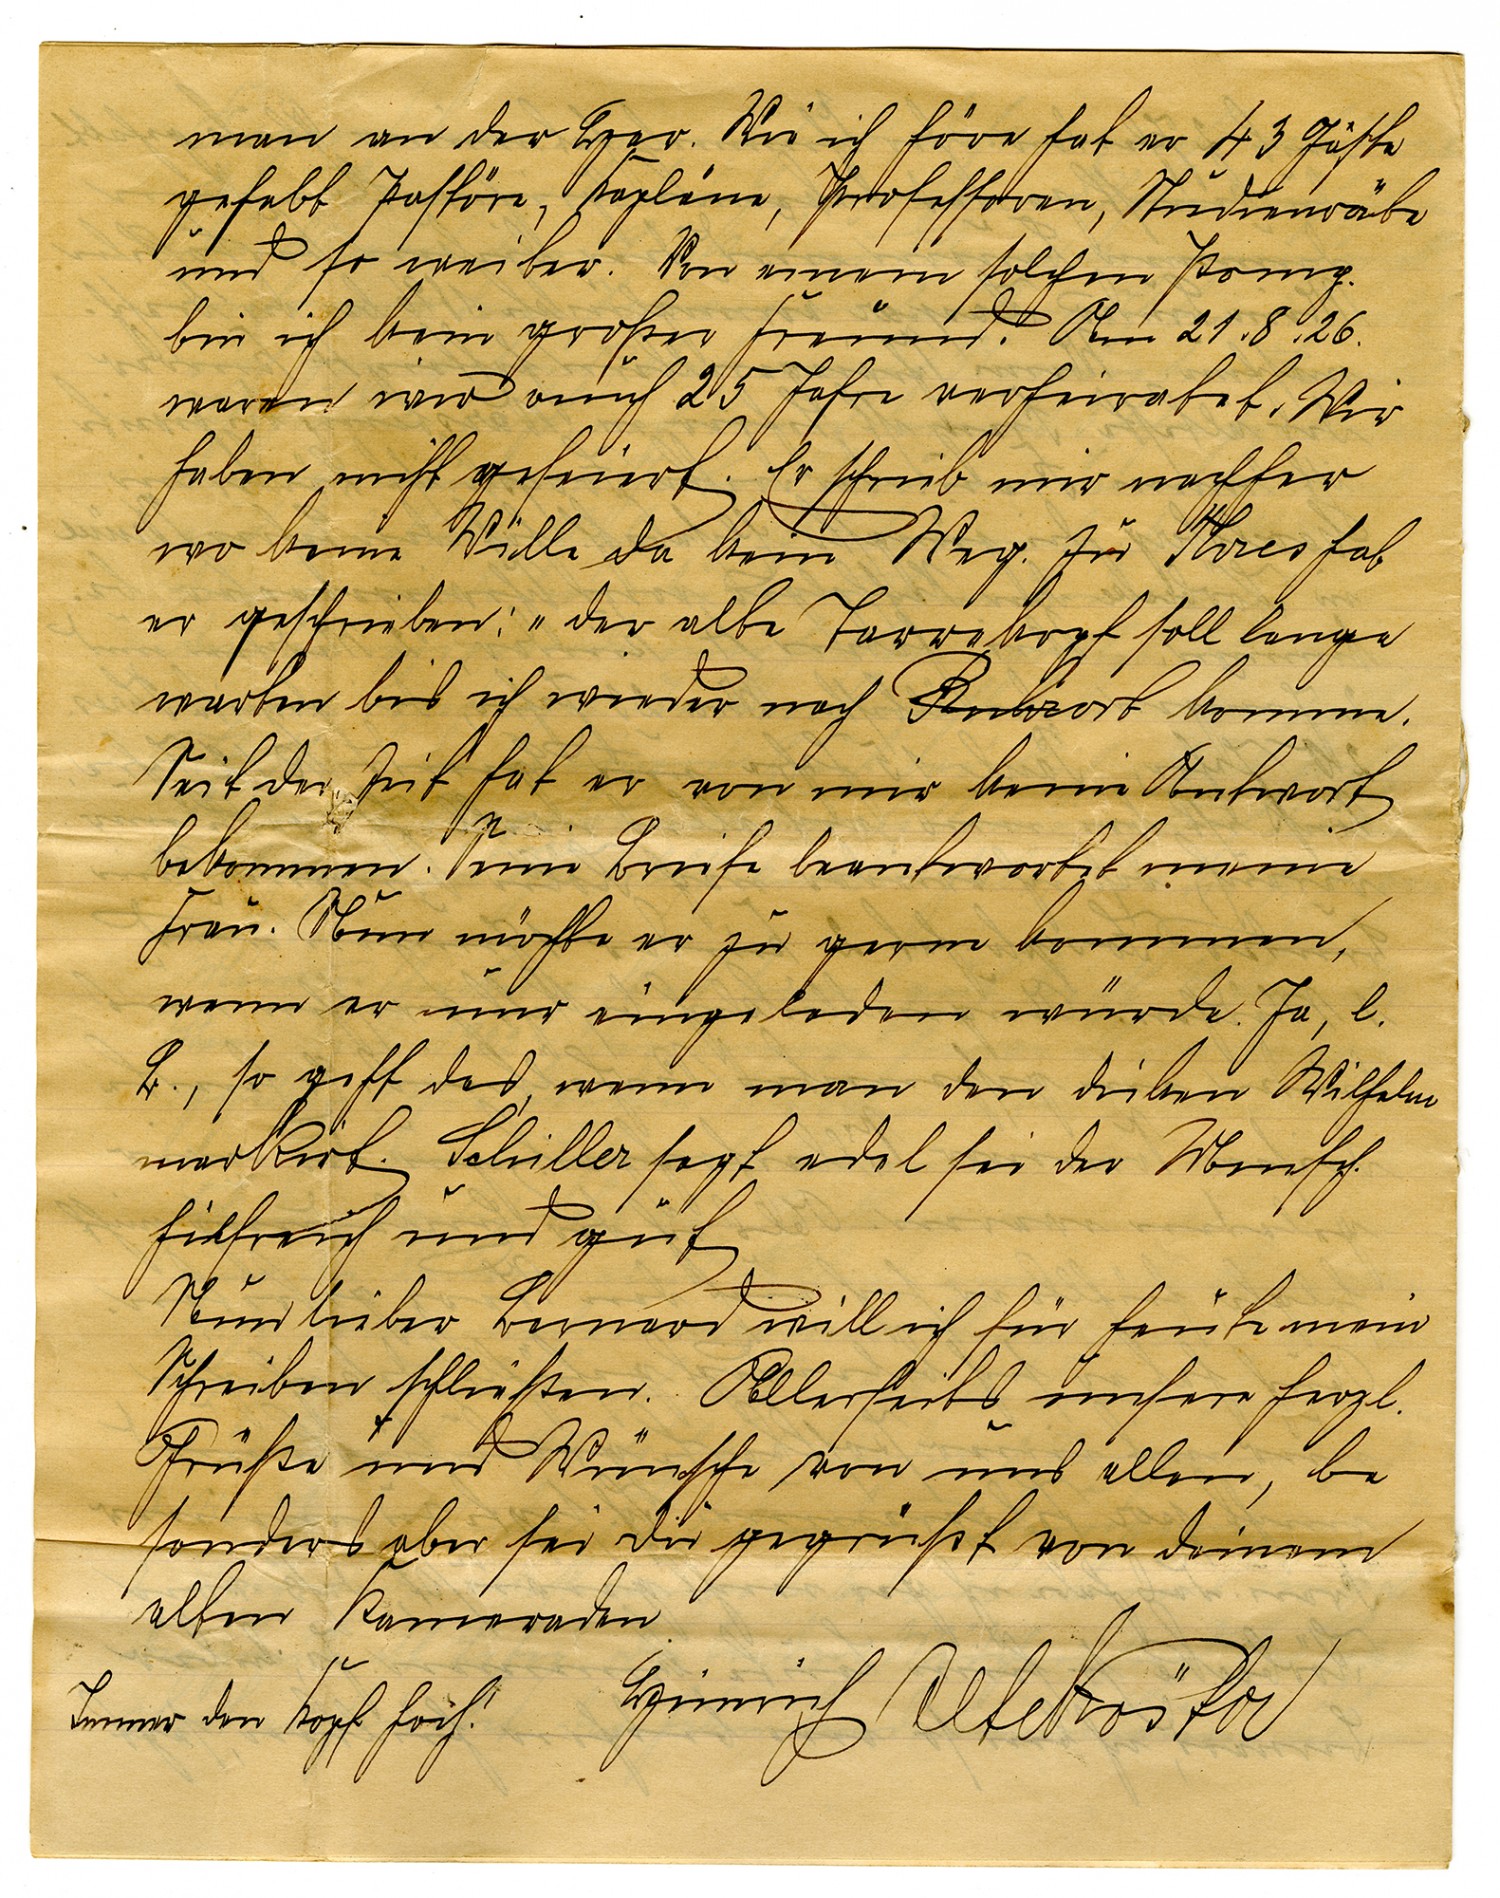 man an der Haar. Wie ich höre hat er 43 Gäste
gehabt Pastöre, Kapläne, Professoren, Studienräte
und so weiter. Von einem solchen Pomp.
bin ich kein großer Freund. Am 21.8.26.
waren wir auch 25 Jahre verheiratet. Wir
haben nicht gefeiert. Er schrieb mir nachher
wo keine Wille da kein Weg. Zu hat
er geschrieben: "der alte soll lange
warten bis ich wieder nach komme.
Seit der Zeit hat er von mir keine Antwort
bekommen. Seine Briefe beantwortet meine
Frau. Nun möchte er zu gerne kommen,
wenn er nur eingeladen würde. Ja, l.
B., so geht das, wenn man den dicken Wilhelm
markirt. Schiller sagt edel sei der Mensch
hilfreich und gut
Nun lieber Bernard will ich für heute mein
Schreiben schließen. Allerseits unsere herzl.
Grüße und Wünsche von uns allen, be
sonders aber sei Du gegrüßt von deinem
alten Kameraden
Immer den Kopf hoch! Heinrich